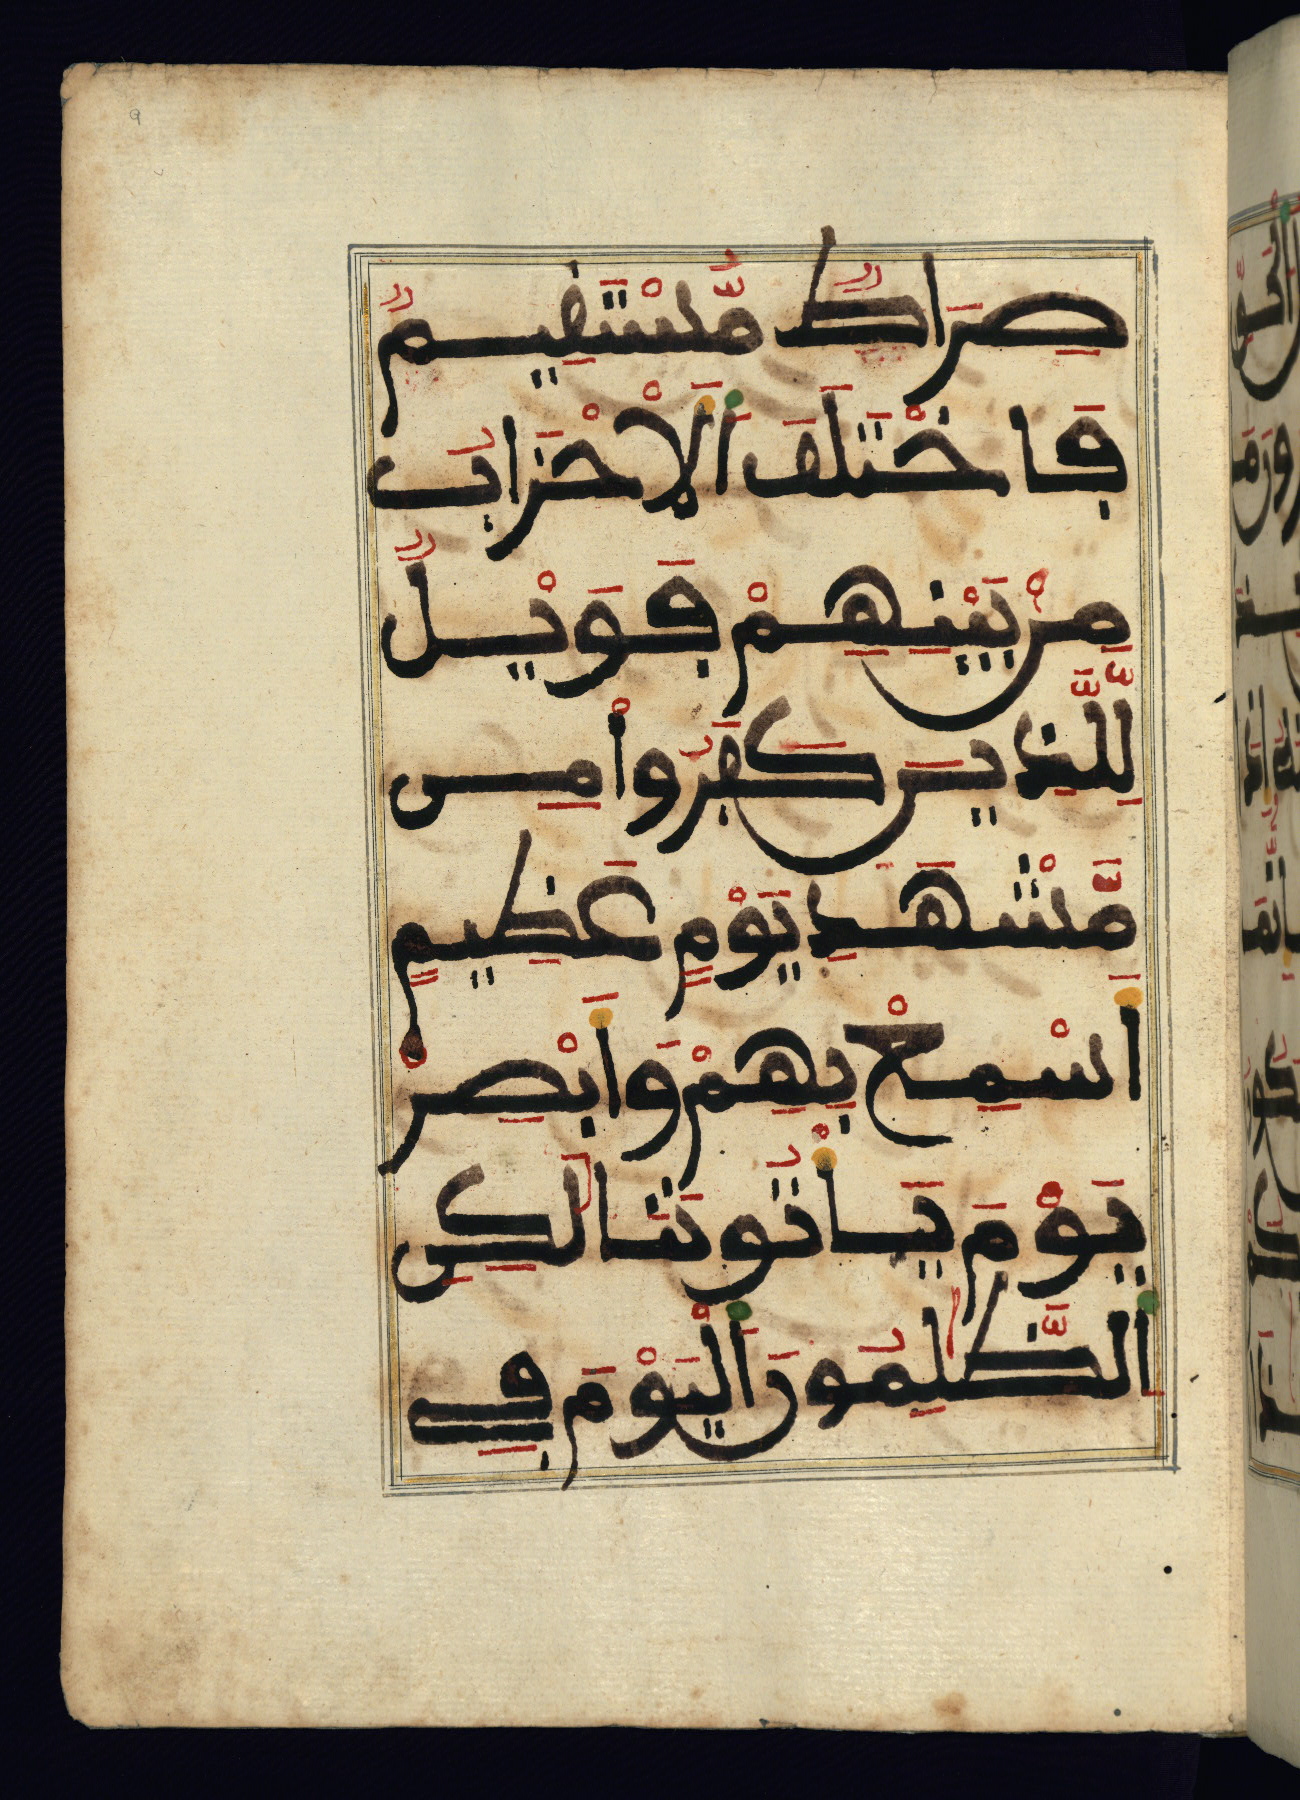 صِرَٰطٌ مُّسْتَقِيمٌ
فَاخْتَلَفَ اَ۬لَاحْزَابُ
مِنۢ بَيْنِهِمْ فَوَيْلٌ
لِّلَّذِينَ كَفَرُواْ مِن
مَّشْهَدِ يَوْمٍ عَظِيمٍ
أَسْمِعْ بِهِمْ وَأَبْصِرْ
يَوْمَ يَأْتُونَنَا لَٰكِنِ
اِ۬لظَّٰلِمُونَ اَ۬لْيَوْمَ فِي